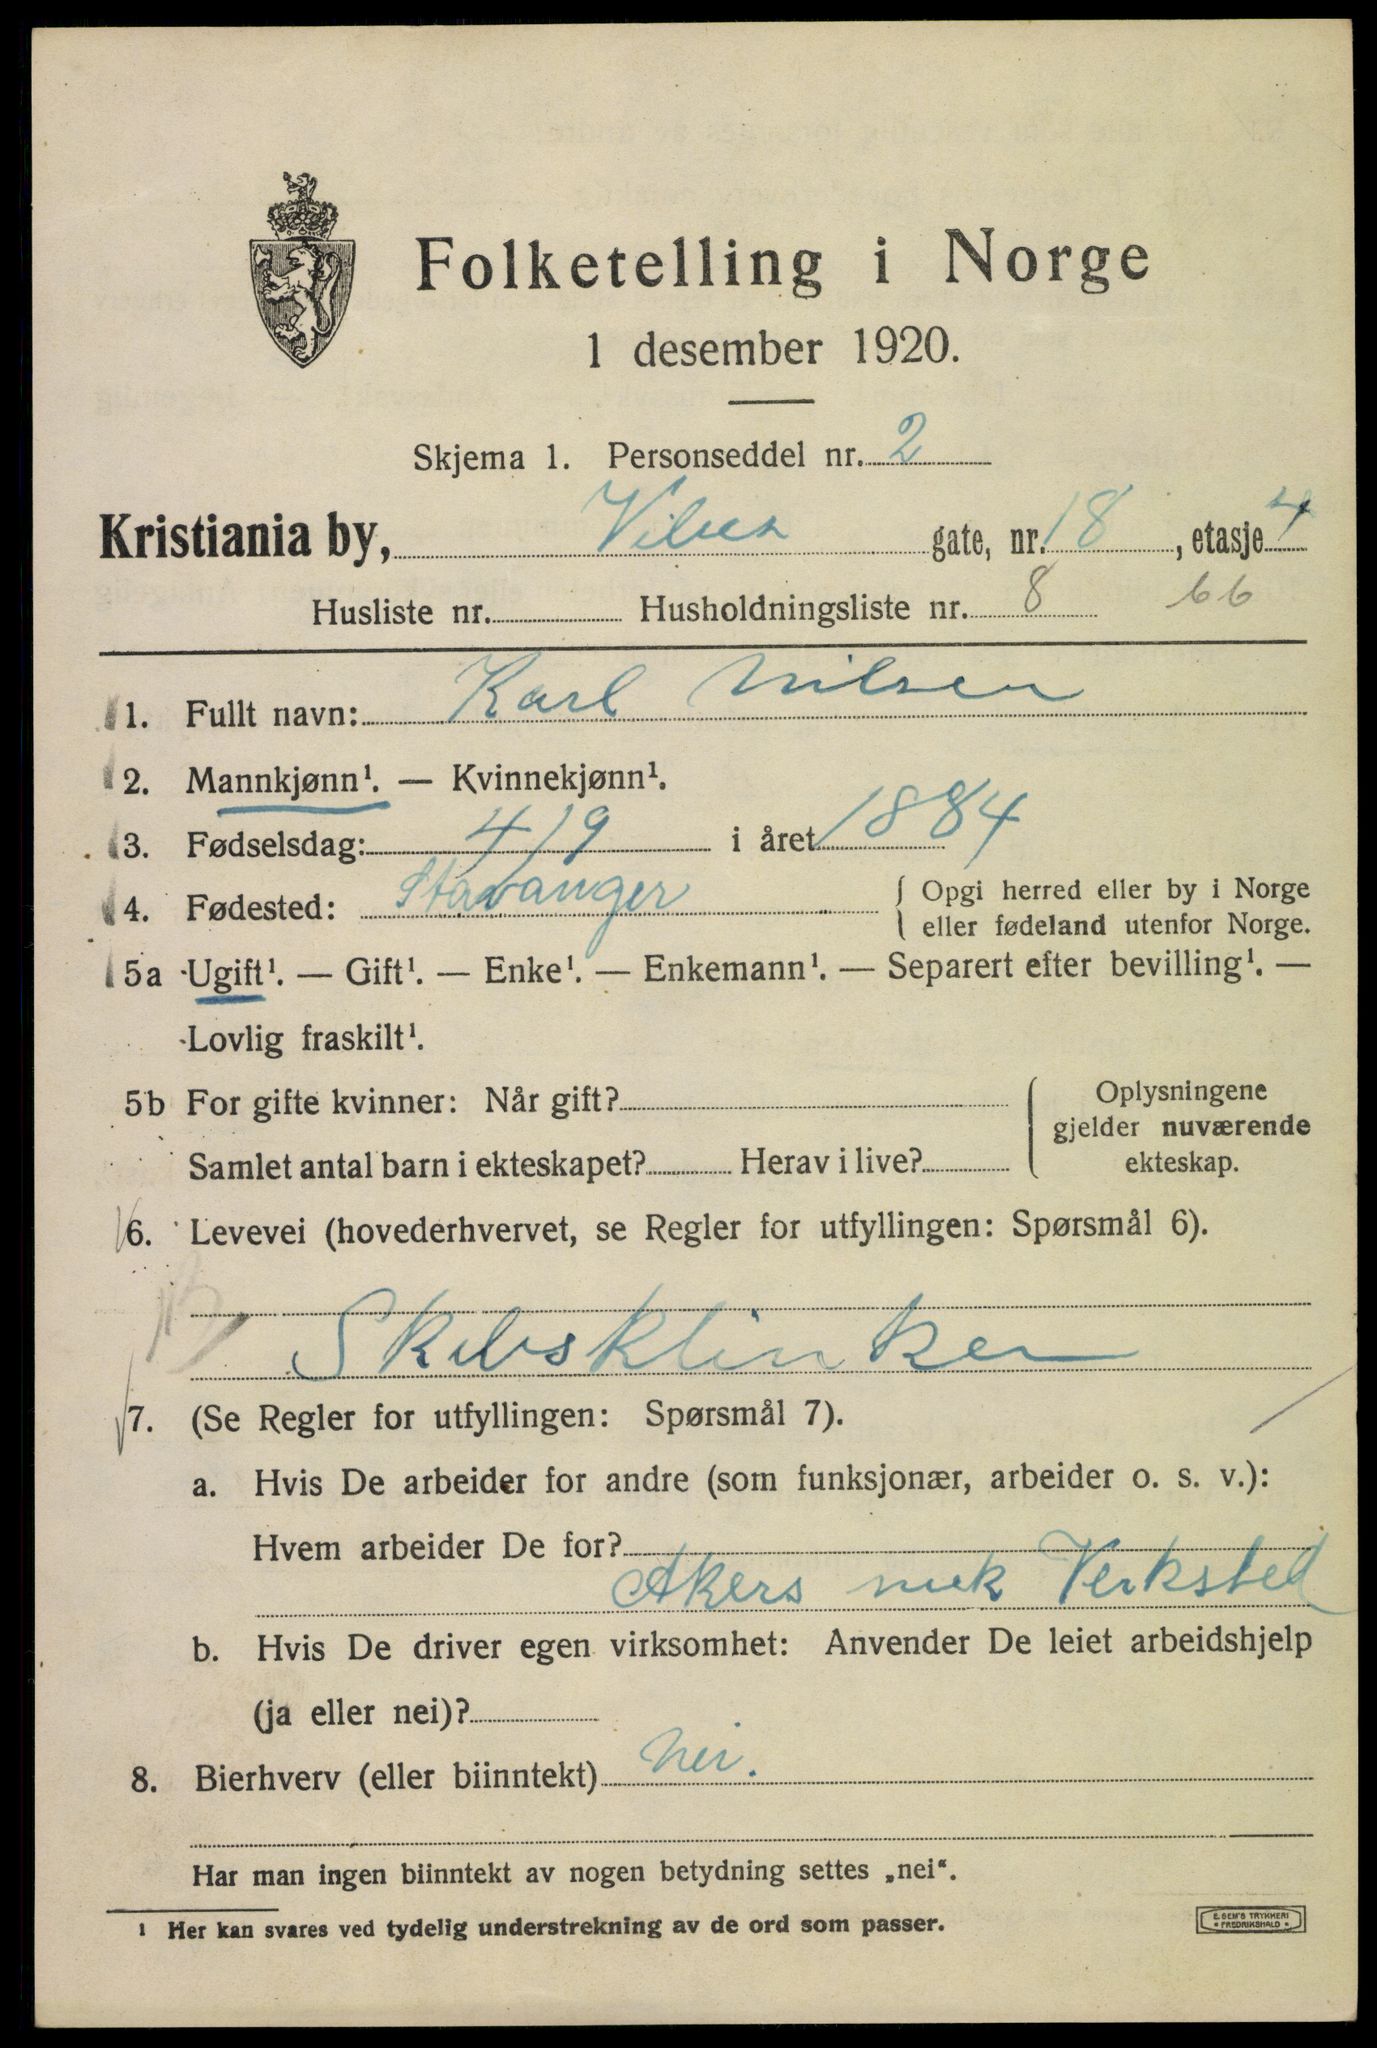 Folketelling i Norge
1 desember 1920.
Skjema 1. Personseddel nr. 2
Kristiania by, Vibes gate, nr. 18, etasje 4
Husliste nr. Husholdningsliste nr. 8 66
1. Fullt navn: Karl Nilsen
2. Mannkjønn¹. — Kvinnekjønn¹.
3. Fødselsdag: 4/9 i året 1884
4. Fødested: Stavanger { Opgi herred eller by i Norge
eller fødeland utenfor Norge.
5a Ugift¹. — Gift¹. — Enke¹. — Enkemann¹. — Separert efter bevilling¹. —
Lovlig fraskilt¹.
5b For gifte kvinner: Når gift? { Oplysningene
gjelder nuværende
Samlet antal barn i ekteskapet? Herav i live? ekteskap.
6. Levevei (hovederhvervet, se Regler for utfyllingen: Spørsmål 6).
Skibsklinker
7. (Se Regler for utfyllingen: Spørsmål 7).
a. Hvis De arbeider for andre (som funksjonær, arbeider o. s. v.):
Hvem arbeider De for?
Akers mek Verksted
b. Hvis De driver egen virksomhet: Anvender De leiet arbeidshjelp
(ja eller nei)?
8. Bierhverv (eller biinntekt) Nei.
Har man ingen biinntekt av nogen betydning settes „nei“.
¹ Her kan svares ved tydelig understrekning av de ord som passer.
E. SEM'S TRYKKERI
* FREDRIKSHALD *